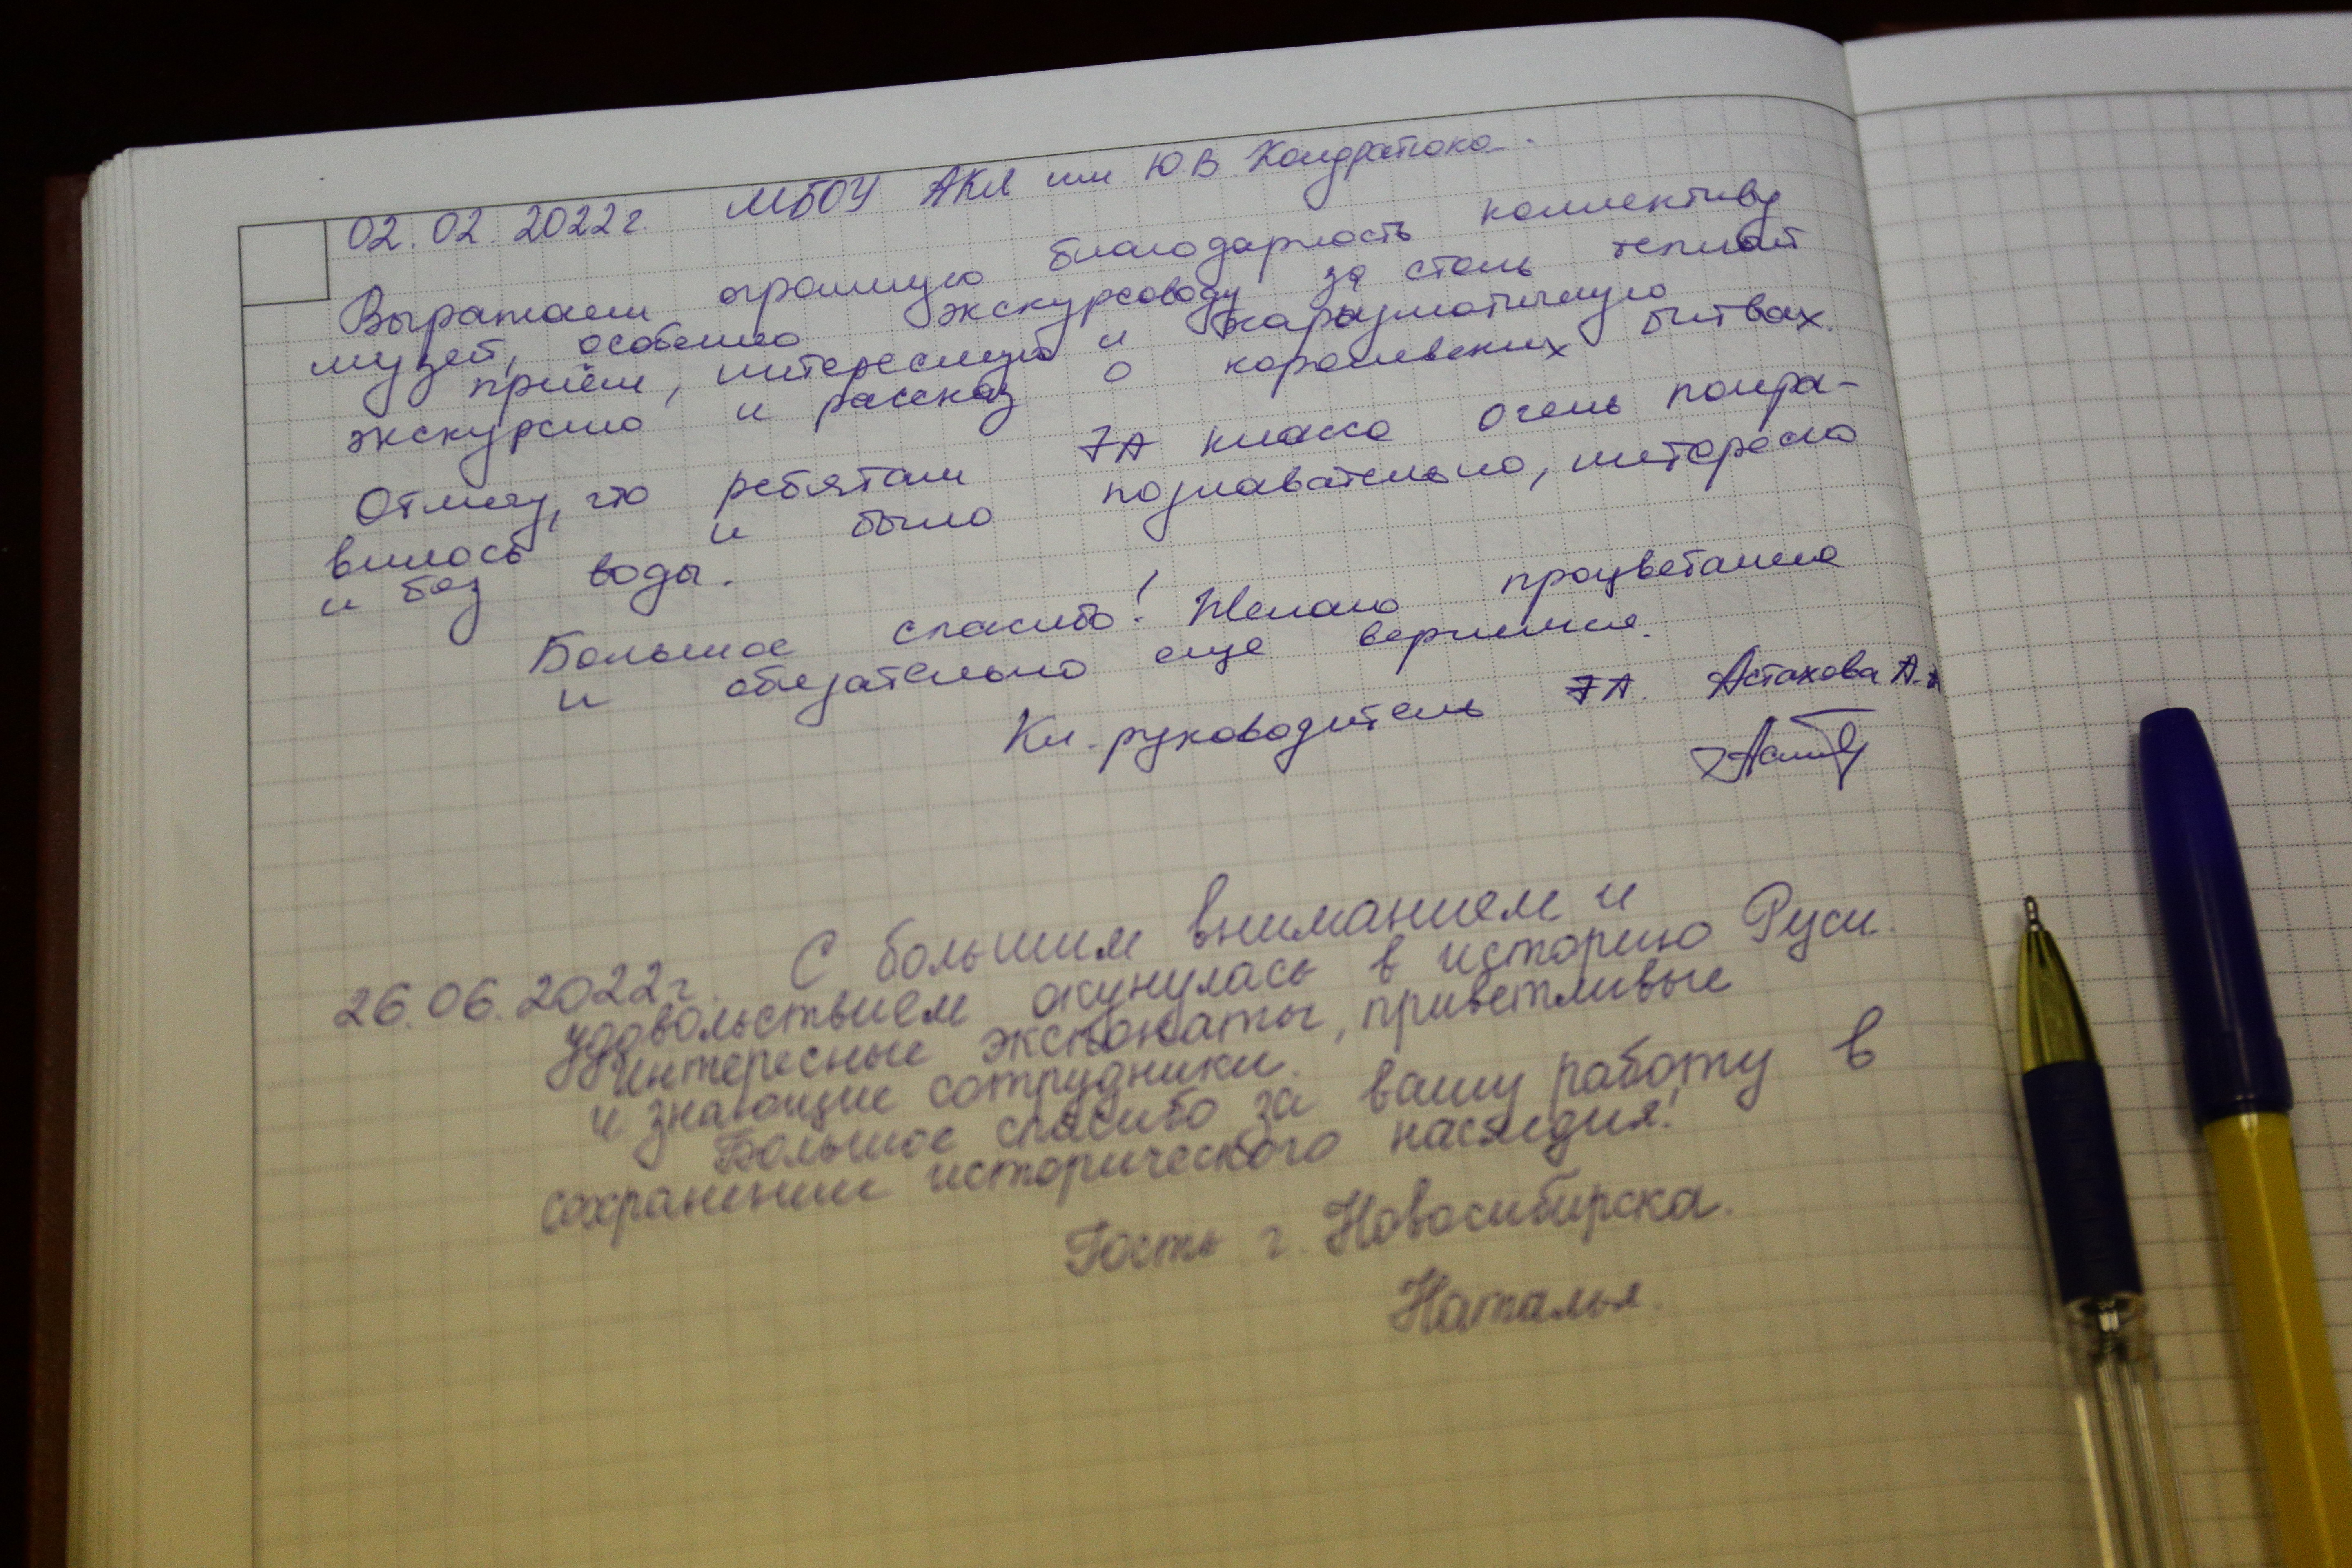 02.02.2022г. МБОУ АКЛ им Ю.В Кондратюка.
Выражаем огромную благодарность коллективу
музея, особенно экскурсоводу за столь теплый
приём, интересную и харизматичную
экскурсию и рассказ о королевских битвах.
Отмечу, что ребятам 7А класса очень понра-
вилось и было познавательно, интересно
и без воды.
Большое спасибо! Желаю процветания
и обязательно еще вернимся.
Кл. руководитель 7А. Астахова А.
26.06.2022г. С большим вниманием и
удовольствием окунулась в историю Руси.
Интересные экспонаты, приветливые
и знающие сотрудники.
Большое спасибо за вашу работу в
сохранении исторического наследия!
Гость г. Новосибирска.
Наталья.